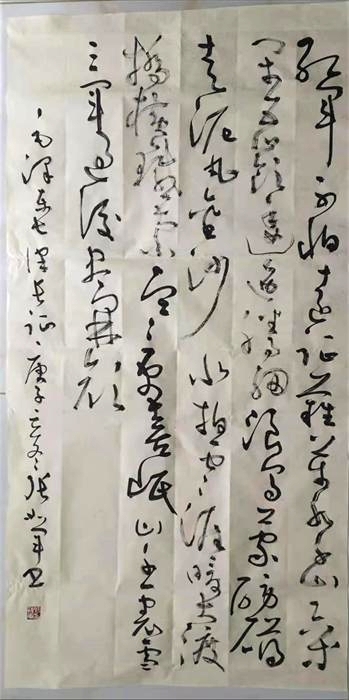 红军不怕远征难万水千山只等
闲五岭逶迤腾细浪乌蒙磅礴
走泥丸金沙水拍云崖暖大渡
桥横铁索寒更喜岷山千里雪
三军过后尽开颜
毛泽东七律长征庚子冬张军书